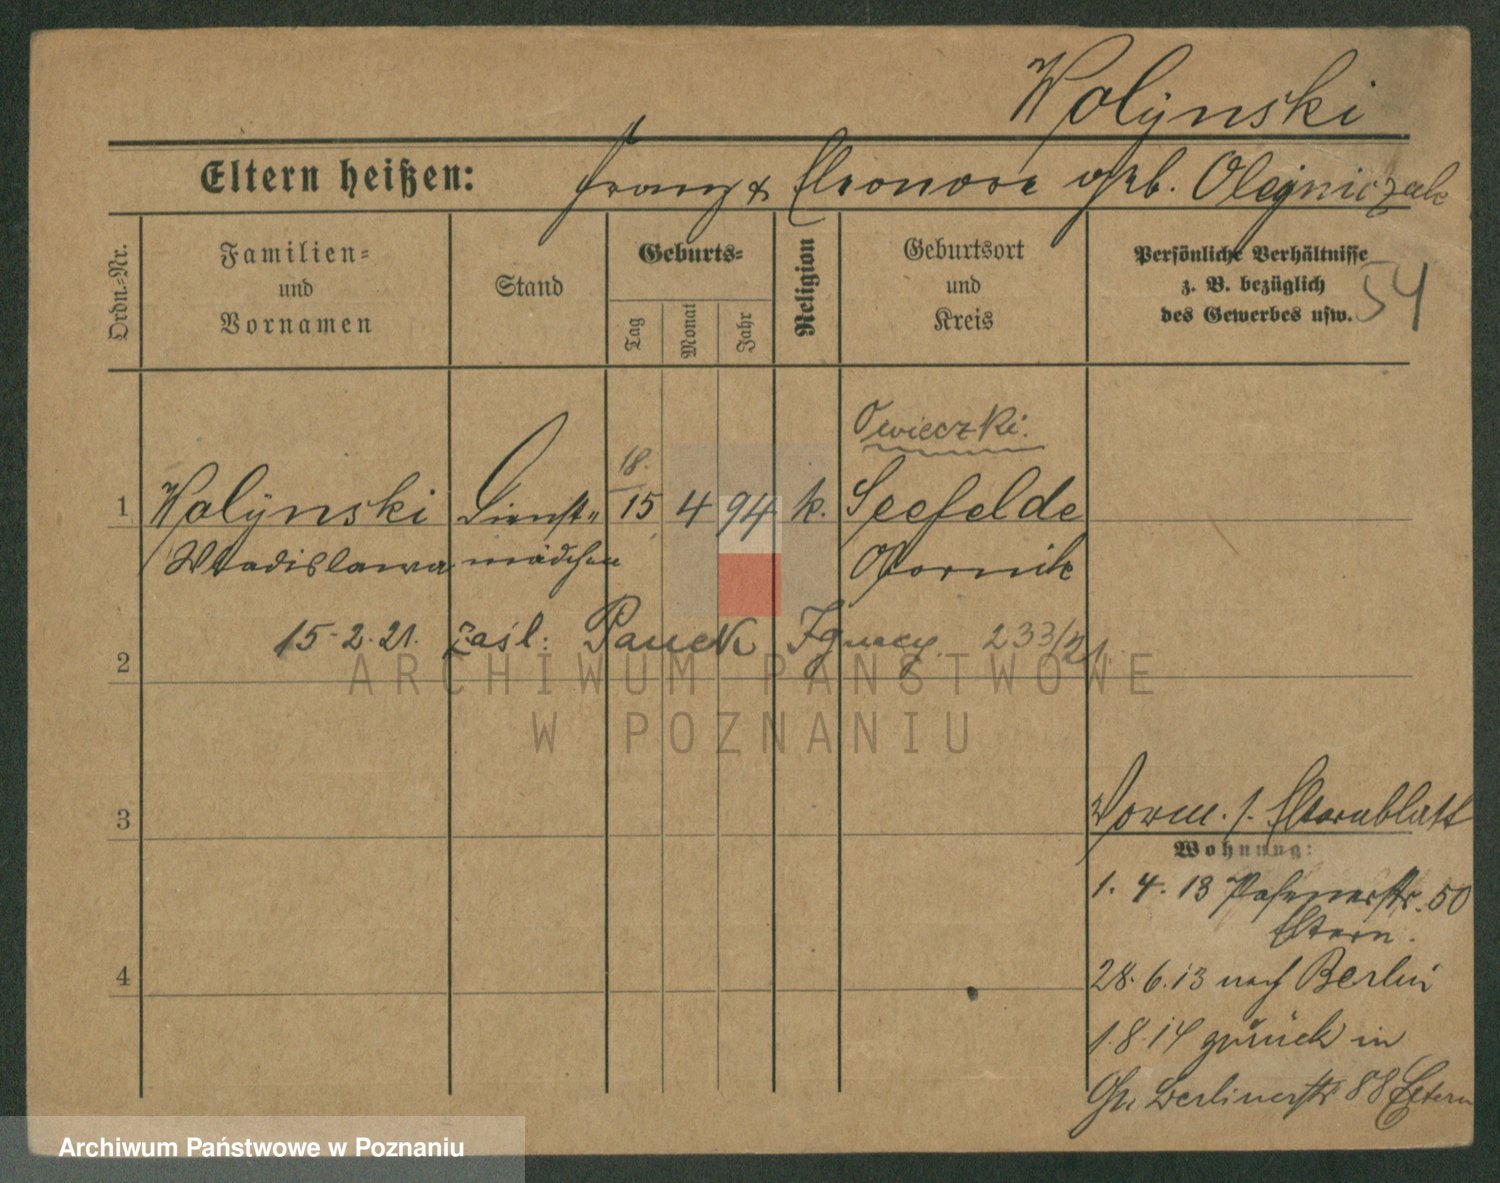 Wolÿnski
Eltern heißen: Franz & Eleonore geb. Olejniczak
Ordn.-Nr.
Familien-
und
Vornamen
Stand
Geburts-
Tag
Monat
Jahr
Religion
Geburtsort
und
Kreis
Persönliche Verhältnisse
z. B. bezüglich
des Gewerbes usw.
54
Owieczki.
18.
1 Wolÿnski Dienst- 15 4 94 k. Seefelde
Wladislawa mädchen Obornik
15.2.21. zaśl: Ignacy 233/21.
2
ARCHIWUM PAŃSTWOWE
W POZNANIU
3
Vorm. s. Elternblatt
Wohnung:
1.4.13 Posenerstr. 50
Eltern.
4
28.6.13 nach Berlin
1.8.14 zurück in
Gn Berlinerstr 88 Eltern
Archiwum Państwowe w Poznaniu